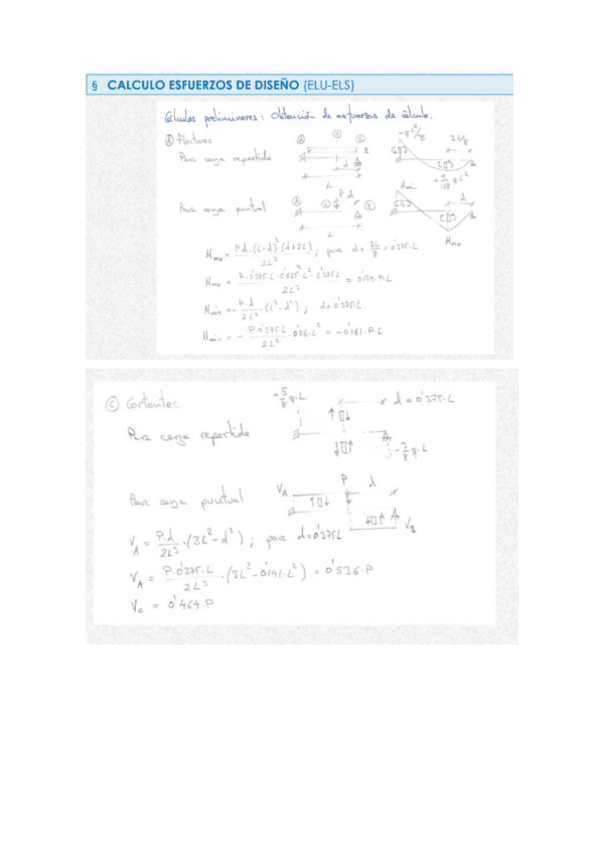 § CALCULO ESFUERZOS DE DISEÑO (ELU-ELS)
Cálculos preliminares: Obtención de esfuerzos de cálculo.
Flectores
Para carga repartida
L
-qL²/8
3L/8
+ 9/128 qL²
Para carga puntual
P d
L
Mmin
d
Mmax
Mmax = P·d·(L-d)²(d+2L) / 2L³ ; para d = 3L/8 = 0'375·L
Mmax = P·0'375·L·0'625²·L²·2'375L / 2L³ = 0'174·P·L
Mmin = - P·d / 2L² · (L²-d²) ; d=0'375L
Mmin = - P·0'375·L / 2L² · 0'86·L² = -0'161·P·L
Ⓒ Cortantes
+ 5/8 q·L
d = 0'375·L
Para carga repartida
- 3/8 q·L
Para carga puntual
VA P d
VB
VA = P·d / 2L³ · (3L²-d²) ; para d=0'375L
VA = P·0'375·L / 2L³ · (3L²-0'141·L²) = 0'536·P
VB = 0'464·P